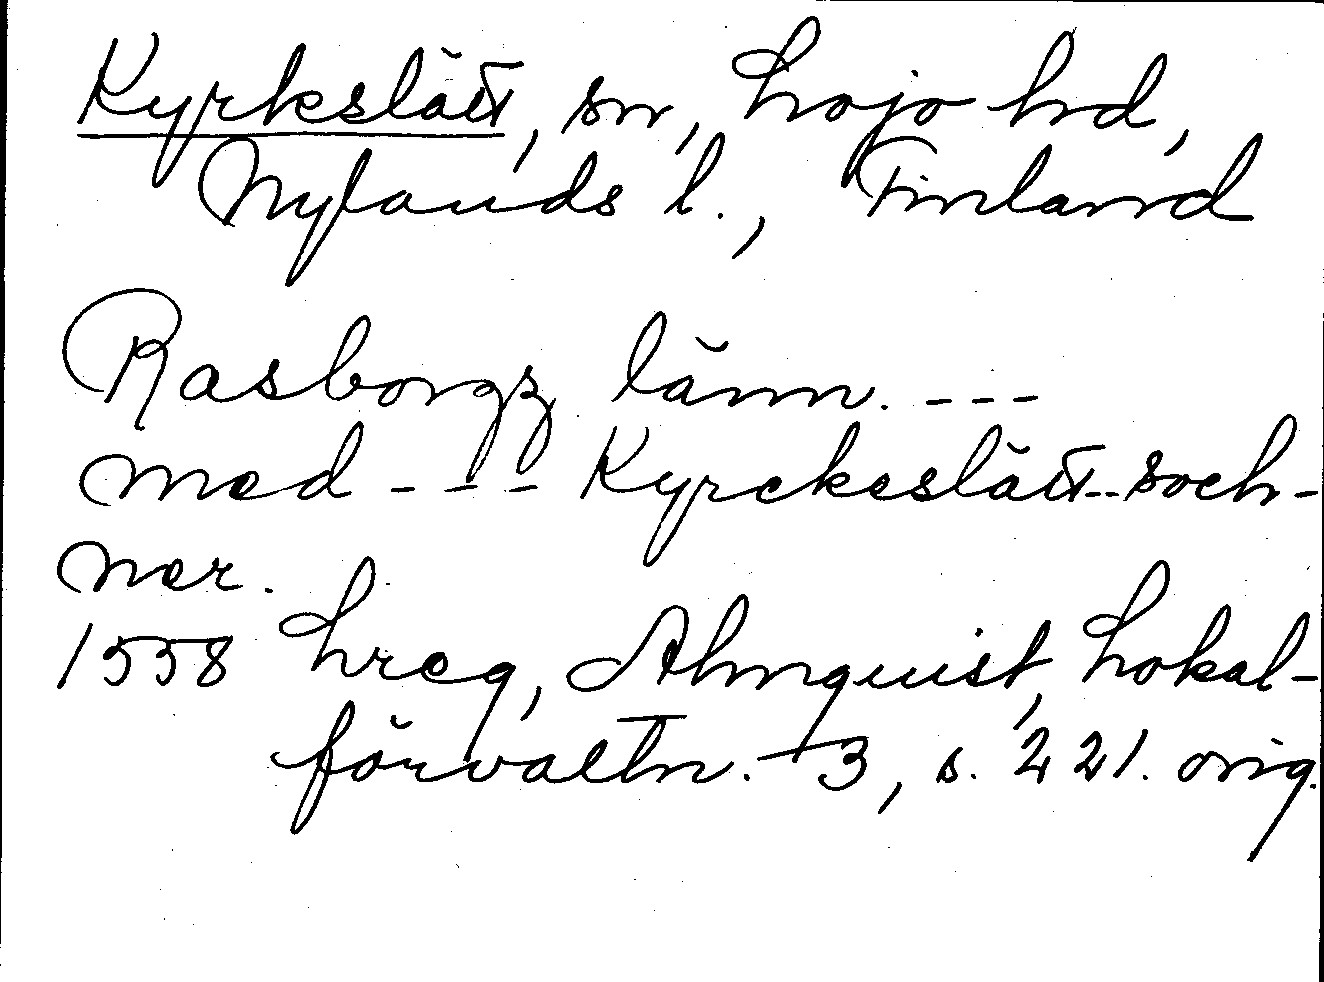 Kyrkslätt, sn, Lojo hd,
Nylands l., Finland
Rasborgz länn. ---
med --- Kyrckeslätt-- soch-
ner.
1558 Lreg, Almquist, Lokal-
förvaltn. 3, s. 221. orig.